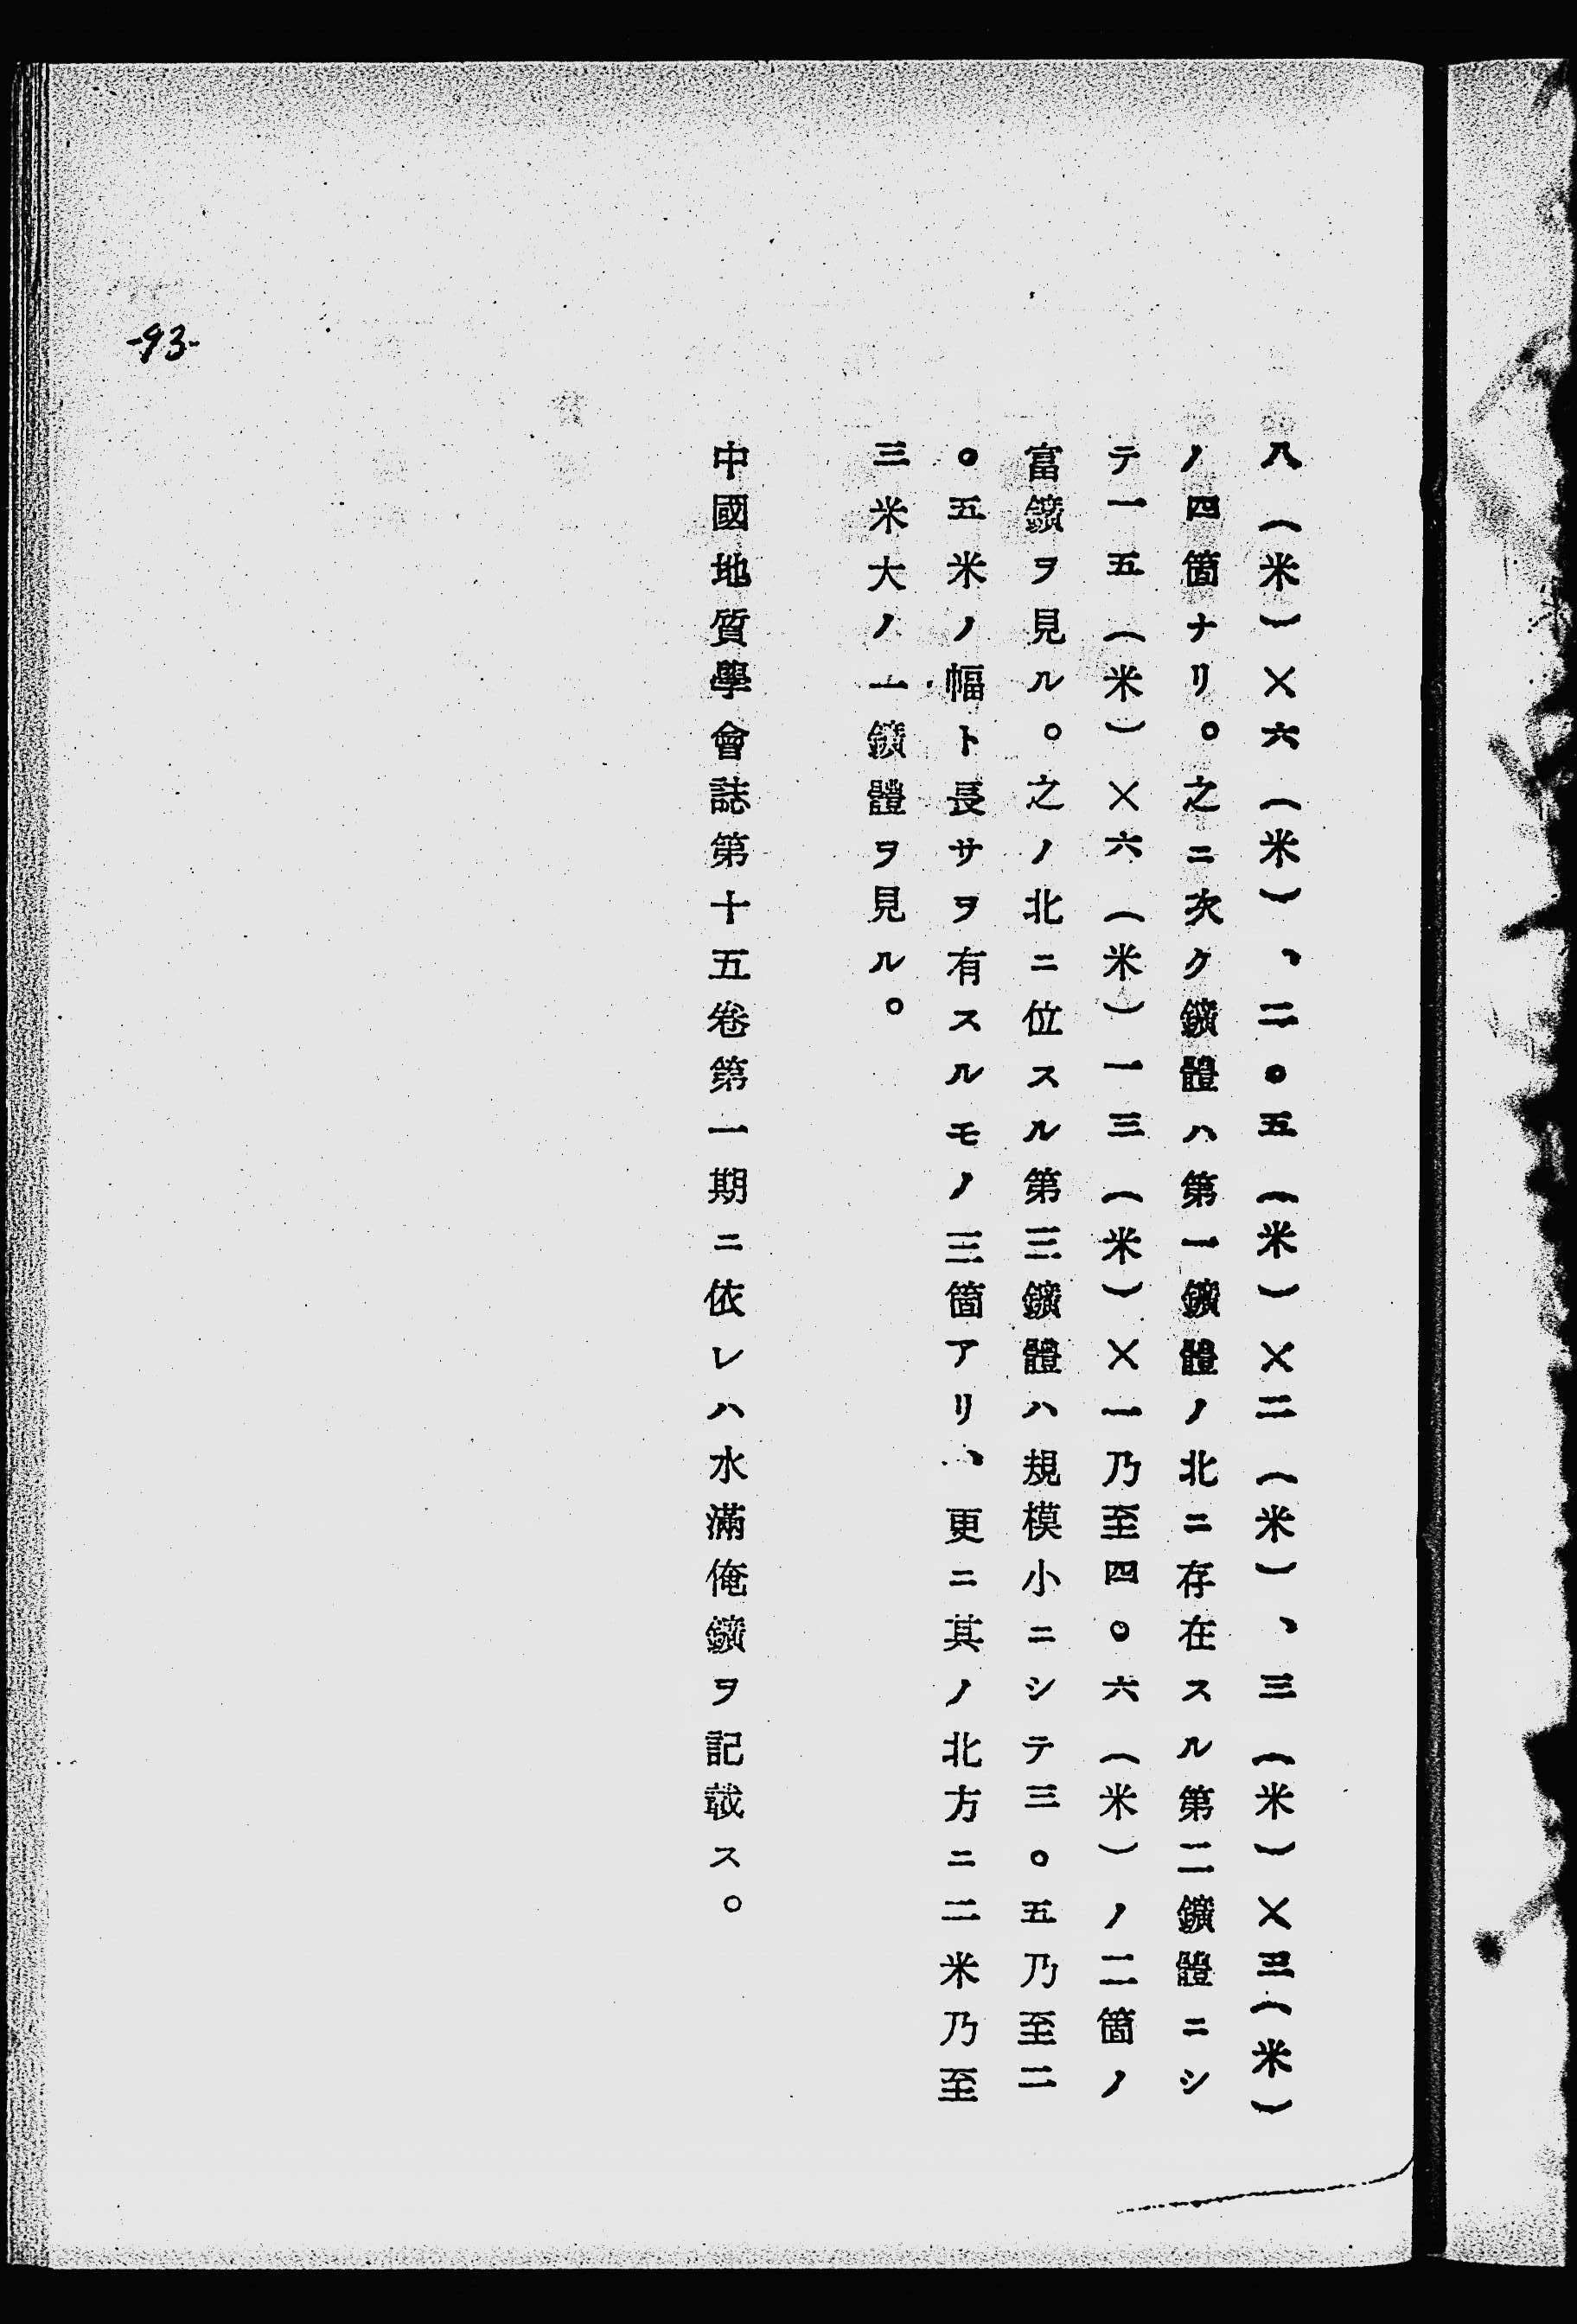 八（米）×六（米）、二。五（米）×二（米）、三（米）×三（米）
ノ四箇ナリ。之ニ次ク鑛體ハ第一鑛體ノ北ニ存在スル第二鑛體ニシ
テ一五（米）×六（米）一三（米）×一乃至四。六（米）ノ二箇ノ
富鑛ヲ見ル。之ノ北ニ位スル第三鑛體ハ規模小ニシテ三。五乃至二
。五米ノ幅ト長サヲ有スルモノ三箇アリ、更ニ其ノ北方ニ二米乃至
三米大ノ一鑛體ヲ見ル。
中國地質學會誌第十五卷第一期ニ依レハ水滿俺鑛ヲ記載ス。
-93-